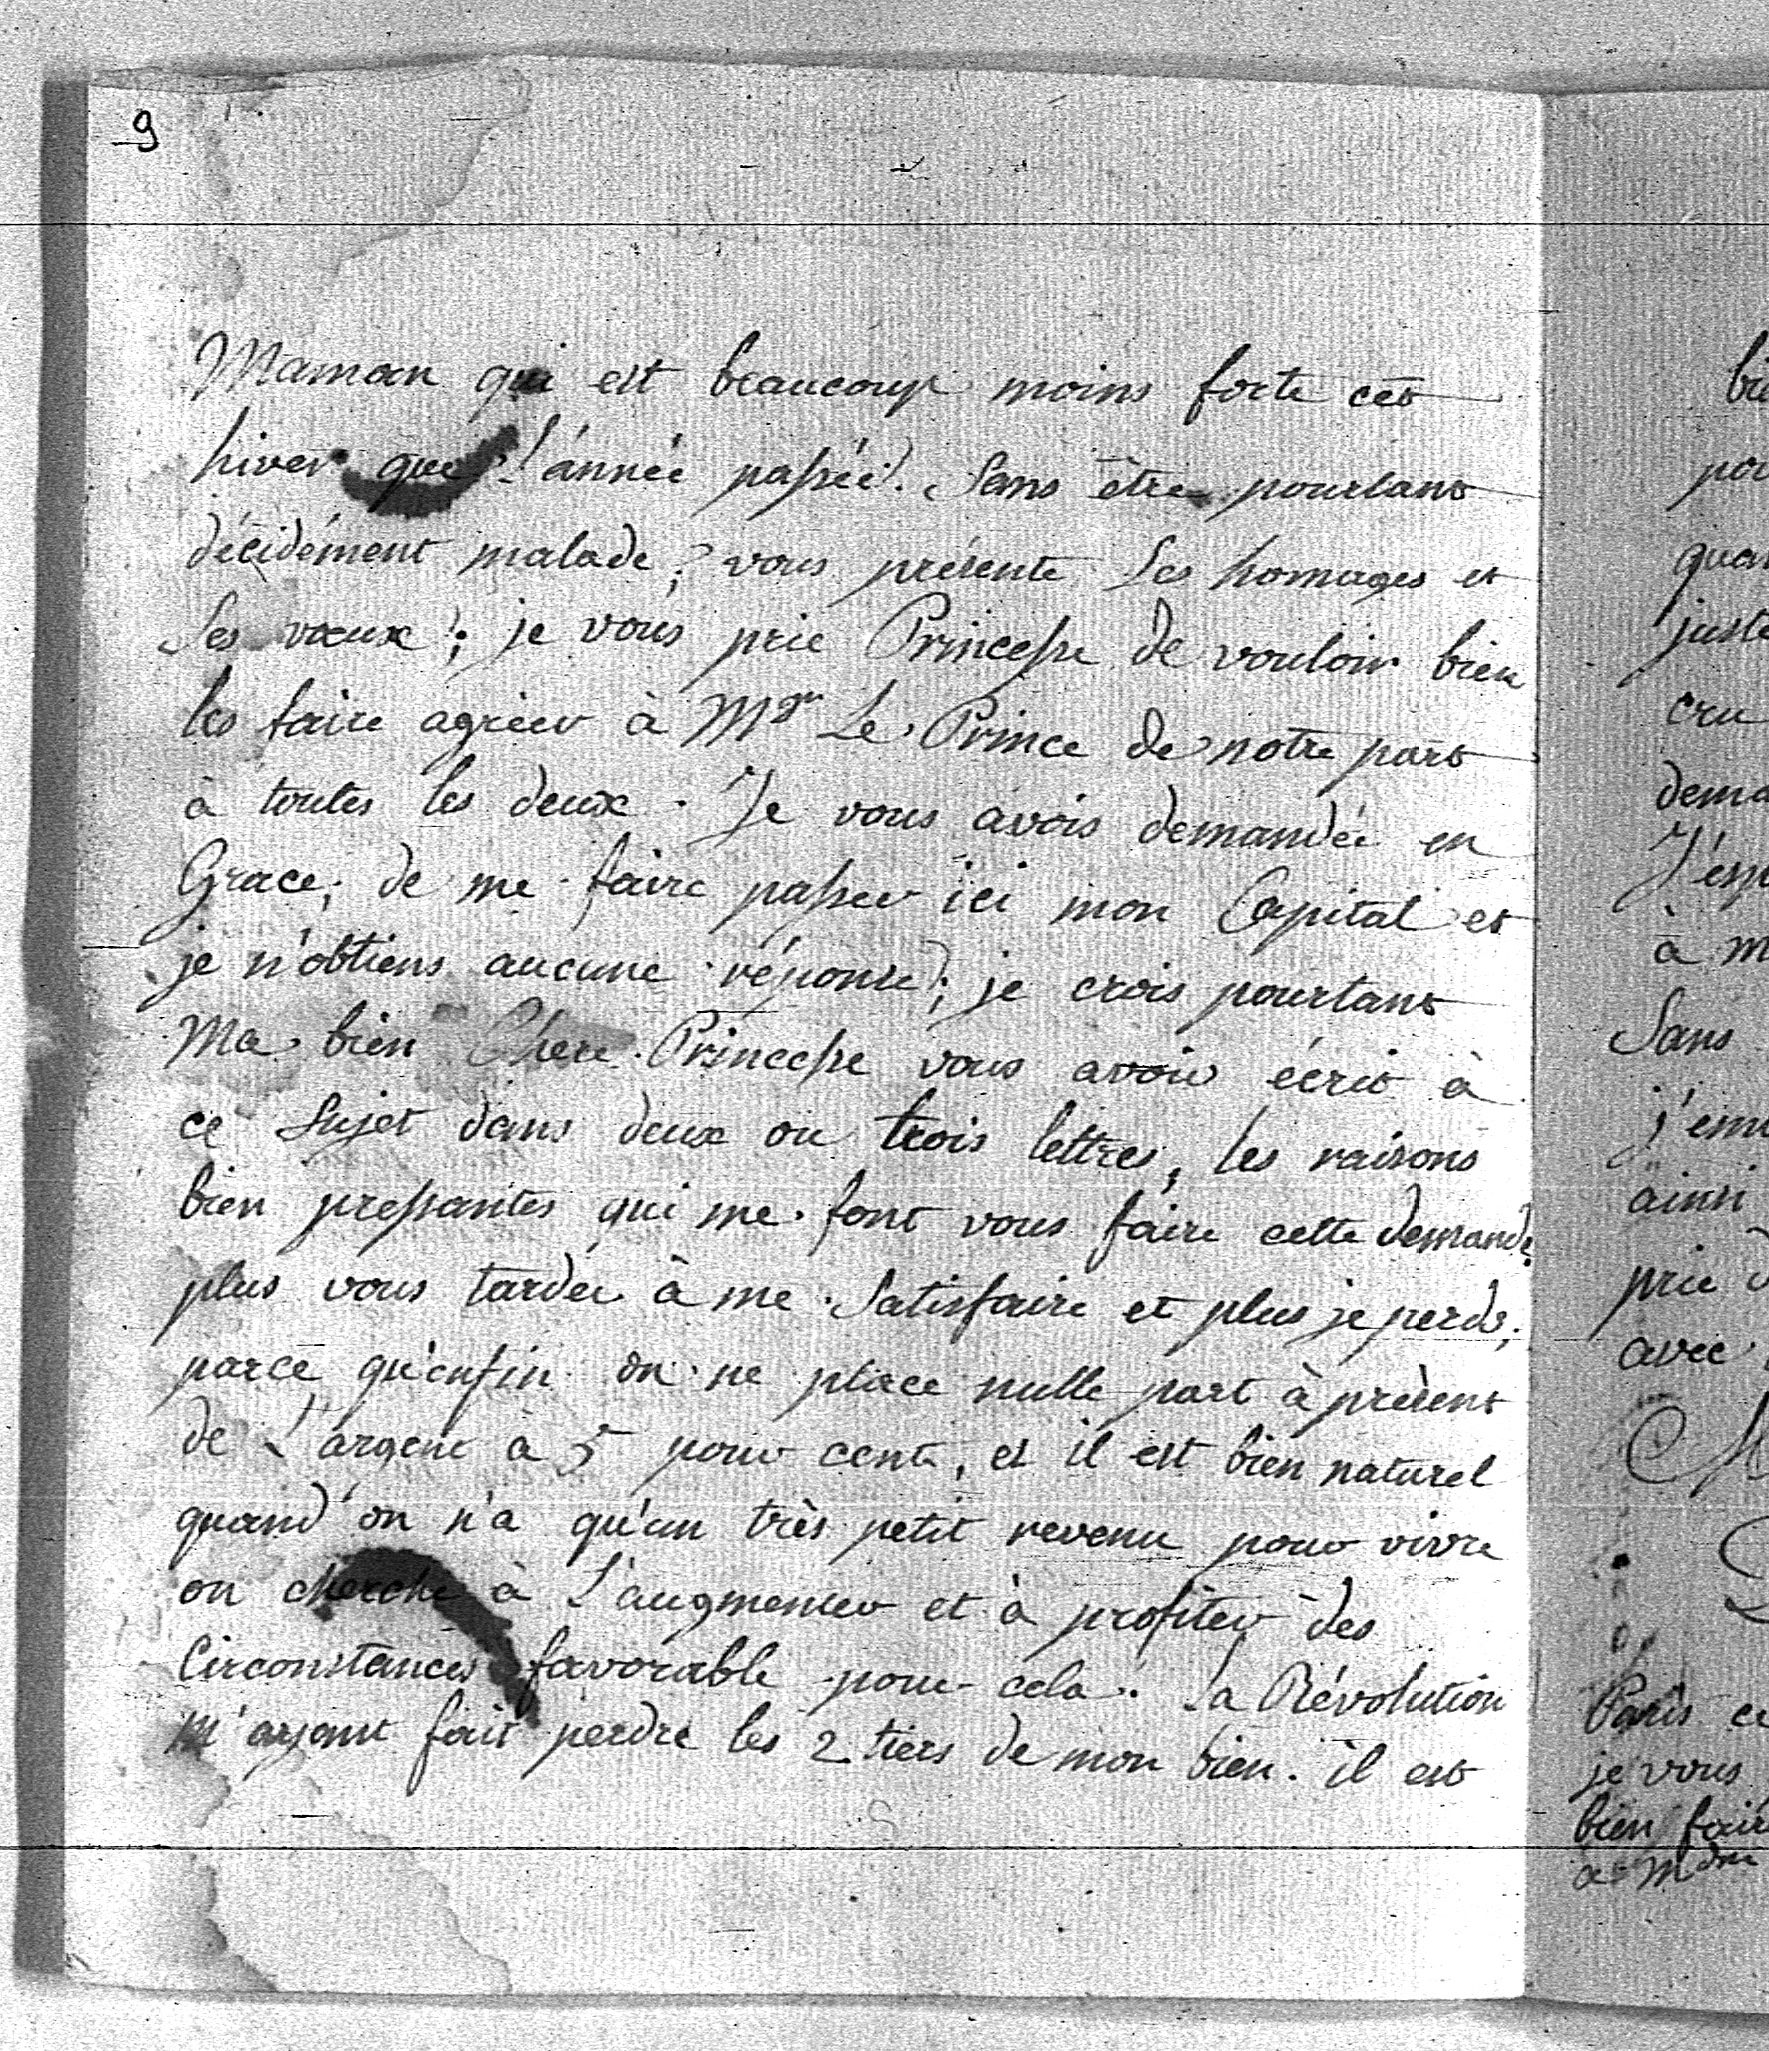 9
Maman qui est beaucoup moins forte cet
hiver que l'année passée. Sans être pourtant
décidément malade; vous présente Ses homages et
Ses vœux; je vous prie Princesse de vouloir bien
les faire agréer à Mgr Le Prince de notre part
à toutes les deux. Je vous avois demandée en
Grace, de me faire passer ici mon Capital et
je n'obtiens aucune réponse; je crois pourtant
Ma bien Chere Princesse vous avoir écrit à
ce Sujet dans deux ou trois lettres, les raisons
bien pressantes qui me font vous faire cette demande
plus vous tardée à me Satisfaire et plus je perds;
parce qu'enfin on ne place nulle part à présent
de L'argent à 5 pour cent, et il est bien naturel
quand on n'a qu'un très petit revenu pour vivre
on cherche à L'augmenter et à profiter des
Circonstances favorable pour cela. la Révolution
m'ayant fait perdre les 2 tiers de mon bien. il est
juste
cru
à m
Sans
ainsi
prie
avec
Paris ce
je vous
bien faire